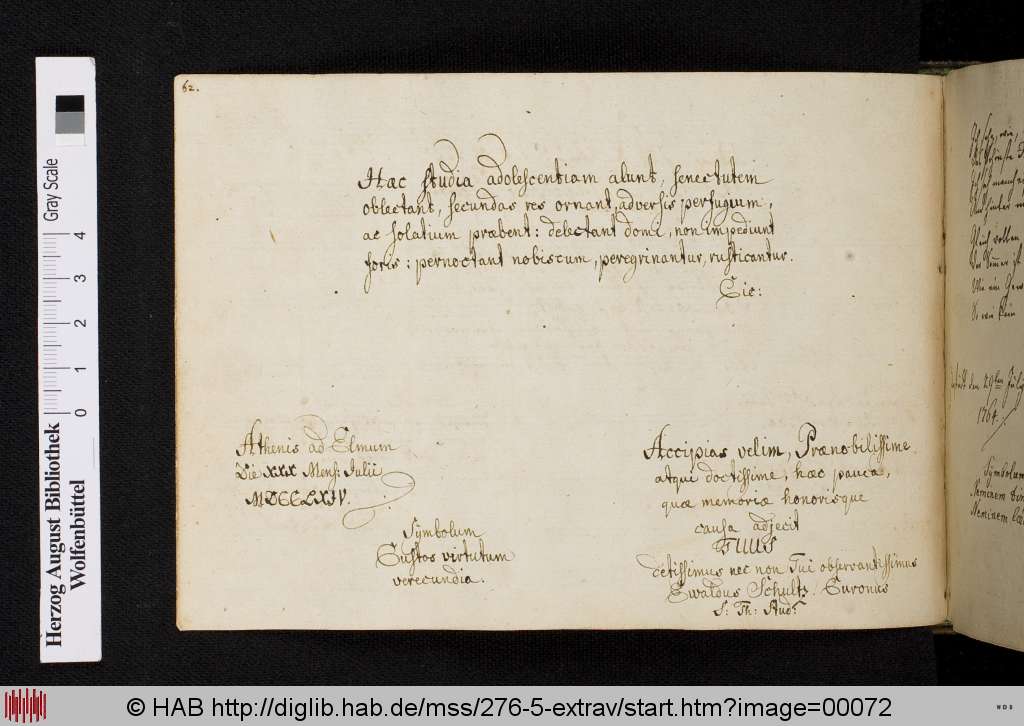 62.
Hæc studia adolescentiam alunt, senectutem
oblectant, secundas res ornant, adversis perfugium,
ac solatium præbent: delectant domi, non impediunt
foris: pernoctant nobiscum, peregrinantur, rusticantur.
Cic:
Athenis ad Elmum
Die XXX Mens: Julii
MDCCLXIV.
Symbolum
Custos virtutum
verecundia.
Accipias velim, Prænobilissime
atque doctissime, hæc pauca,
quæ memoriæ honorisque
causa adjecit
TUUS
detissimus nec non Tui observantissimus
Ewaldus Schultz. Curonus
S: Th: Stud:
1764.
Symbolum
Herzog August Bibliothek
Wolfenbüttel
Gray Scale
0 1 2 3 4
© HAB http://diglib.hab.de/mss/276-5-extrav/start.htm?image=00072
WDB